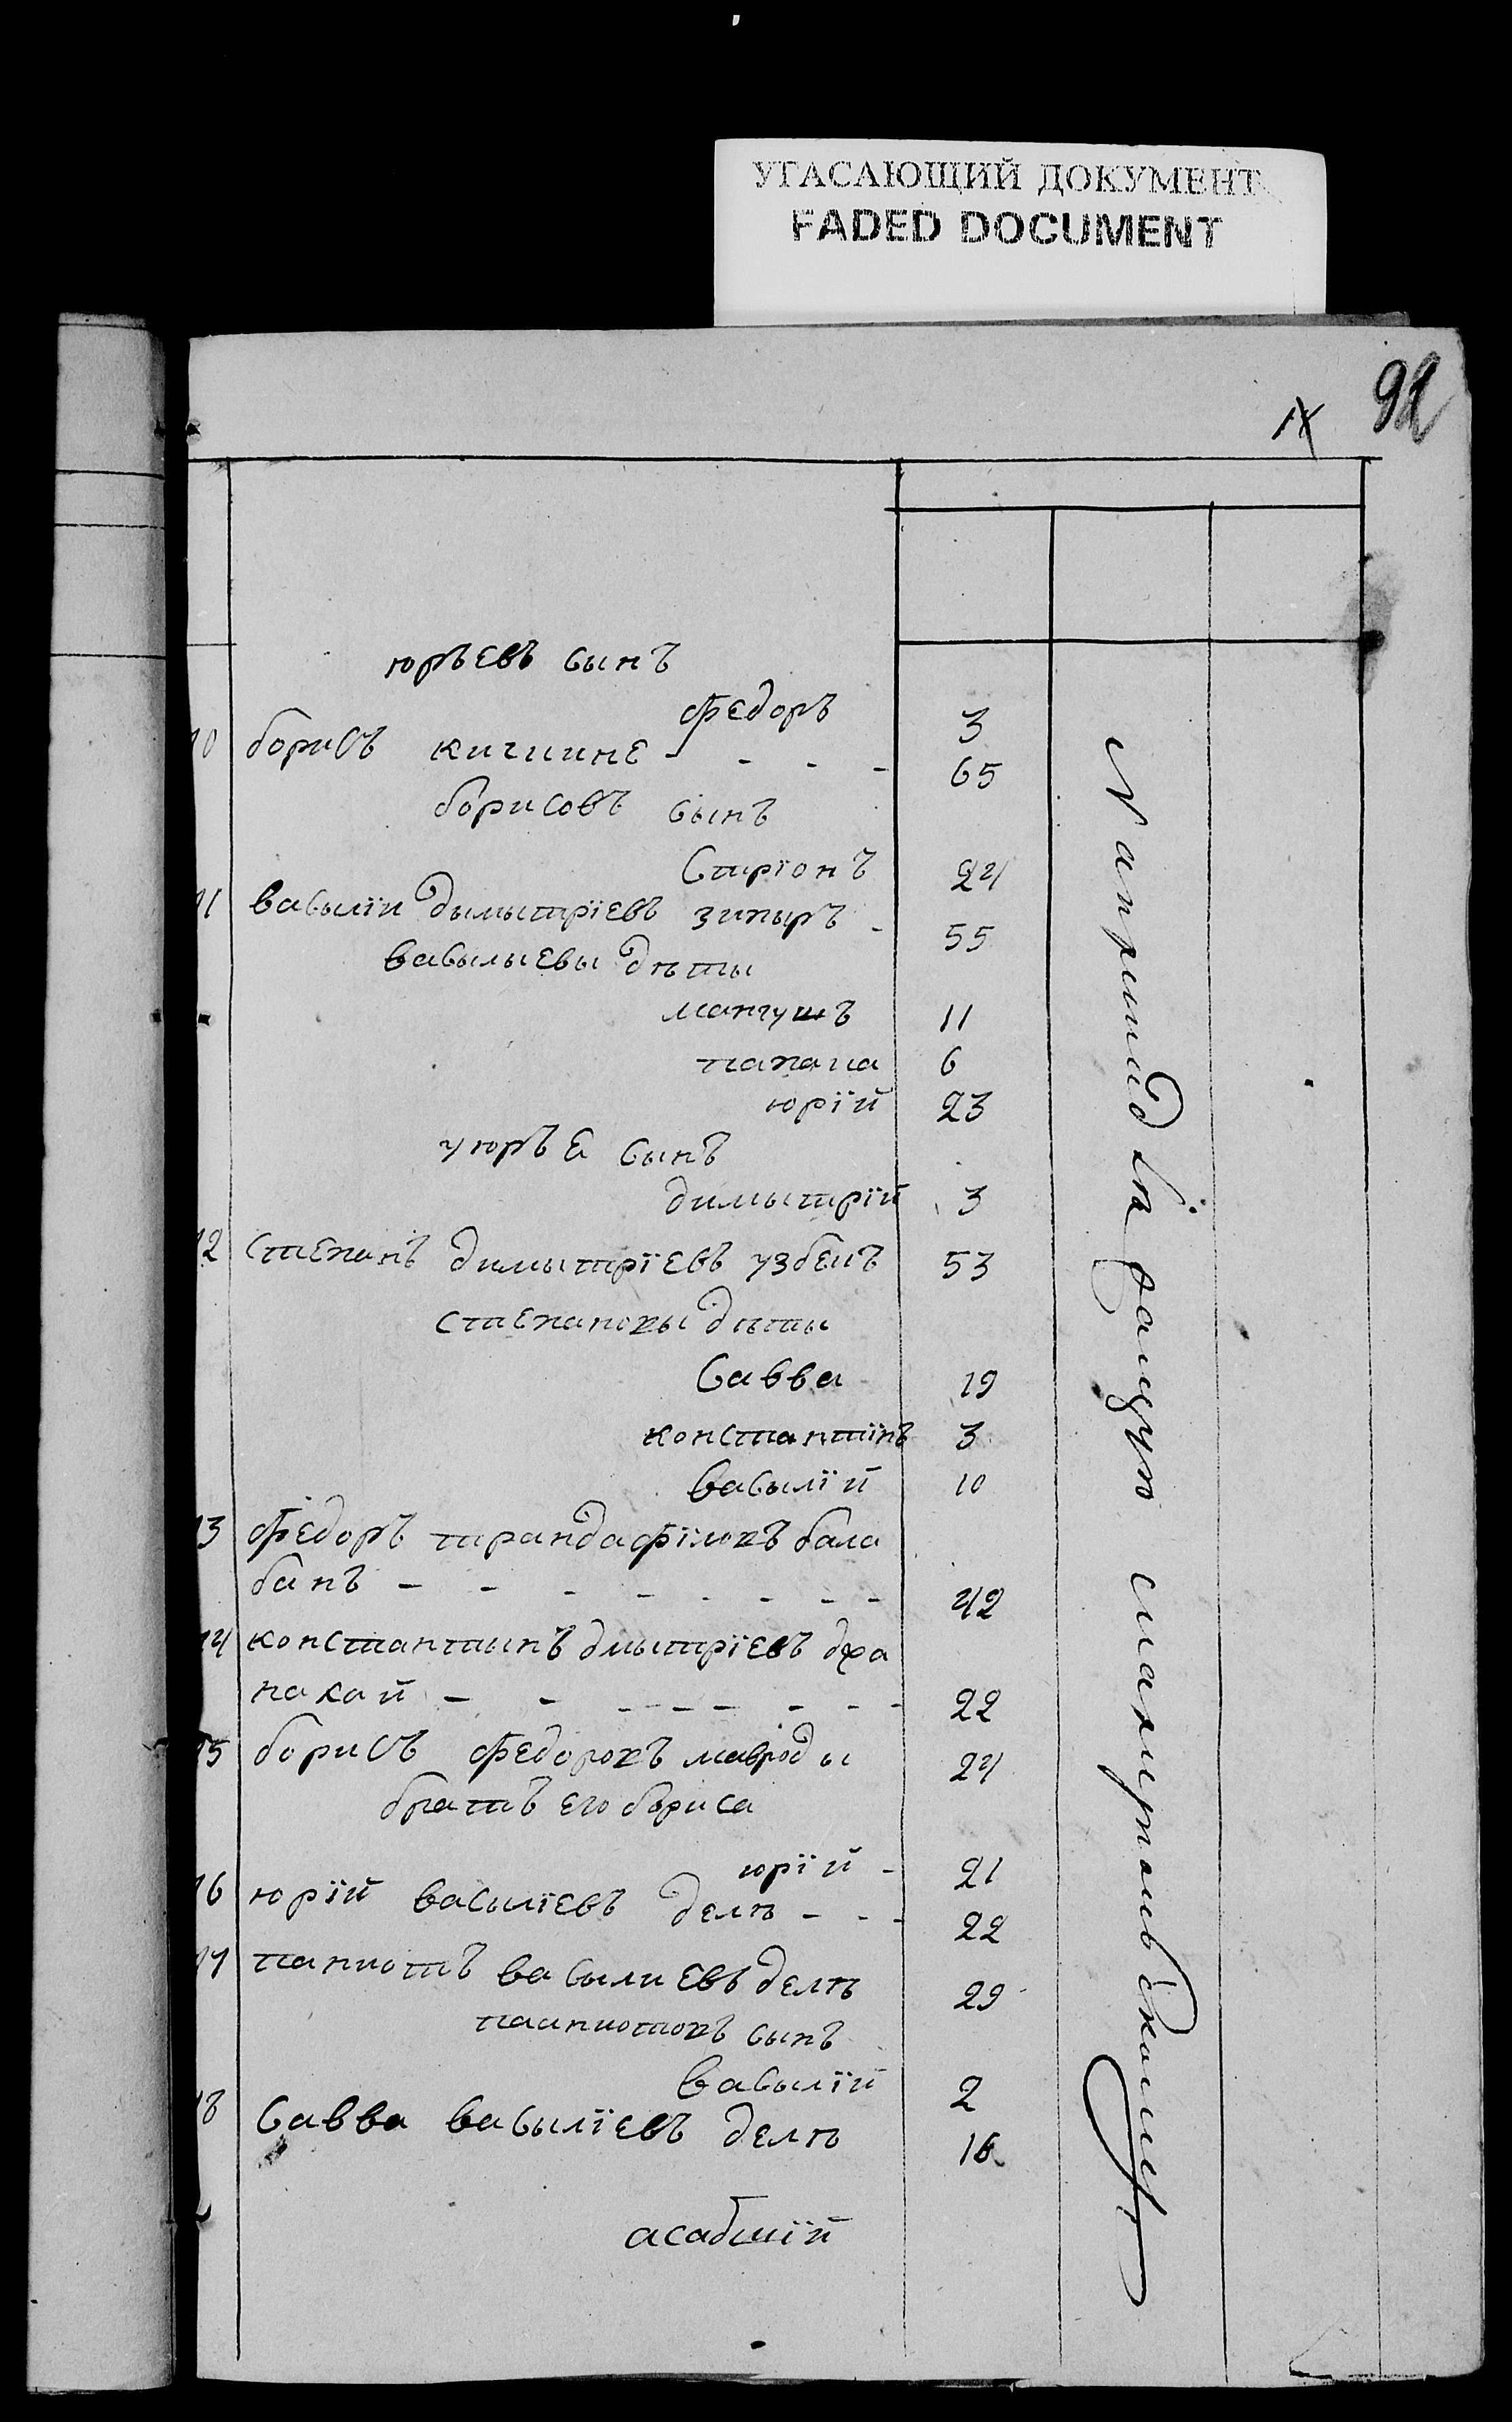 УГАСАЮЩИЙ ДОКУМЕНТ
FADED DOCUMENT
92
юрьевъ сынъ
федоръ 3
10 борисъ кичиине - - - 65
борисовъ сынъ
Стрїонъ 24
11 василїи дымытрїевъ зипыръ - 55
васылыевы дѣты
мангушъ 11
папаца 6
юрїй 23
у юрья сынъ
димытрїй 3
12 степанъ димытрїевъ узбеиъ 53
степановы дѣты
Савва 19
константїнъ 3
васылїй 10
13 федоръ трандафїловъ бала
банъ - - - - - - - 42
14 константынъ дмытрїевъ джа
накай - - - - - - - - 22
15 борисъ федоровъ мавроды 24
братъ его бориса
юрїй - 21
16 юрїй васылїевъ делѣ - - - 22
17 паниотъ васылиевъ делѣ 29
пааниотовъ сынъ
васылїй 2
18 Савва васылїевъ делѣ 16
асабшїй